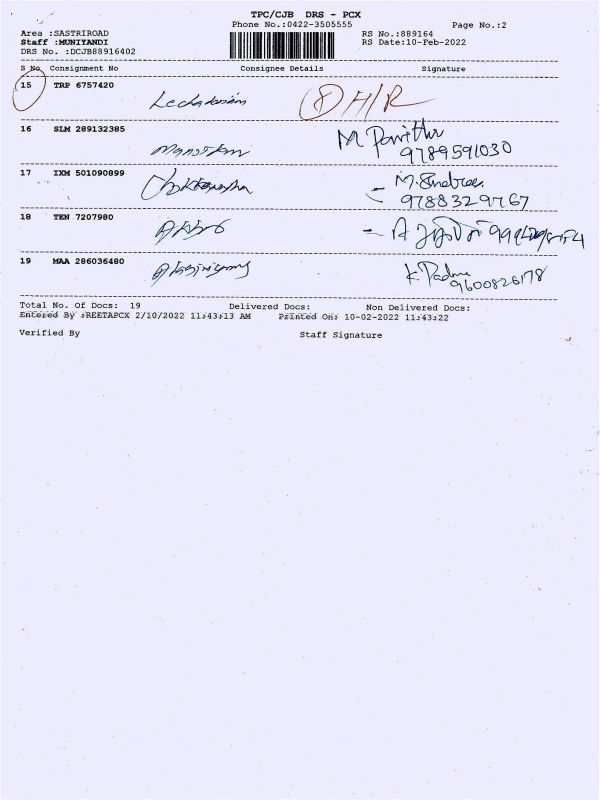 TPC/CJB DRS - PCX
Phone No.:0422-3505555
Page No.:2
Area :SASTRIROAD
RS No.:889164
Staff :MUNIYANDI
RS Date:10-Feb-2022
DRS No. :DCJB88916402
S No Consignment No Consignee Details Signature
15 TRP 6757420
8 H/R
16 SLM 289132385
M
9789591030
17 IXM 501090899
M.
9788329767
18 TEN 7207980
A
19 MAA 286036480
K. Padma
9600826178
Total No. Of Docs: 19 Delivered Docs: Non Delivered Docs:
Entered By :REETAPCX 2/10/2022 11:43:13 AM Printed On: 10-02-2022 11:43:22
Verified By Staff Signature